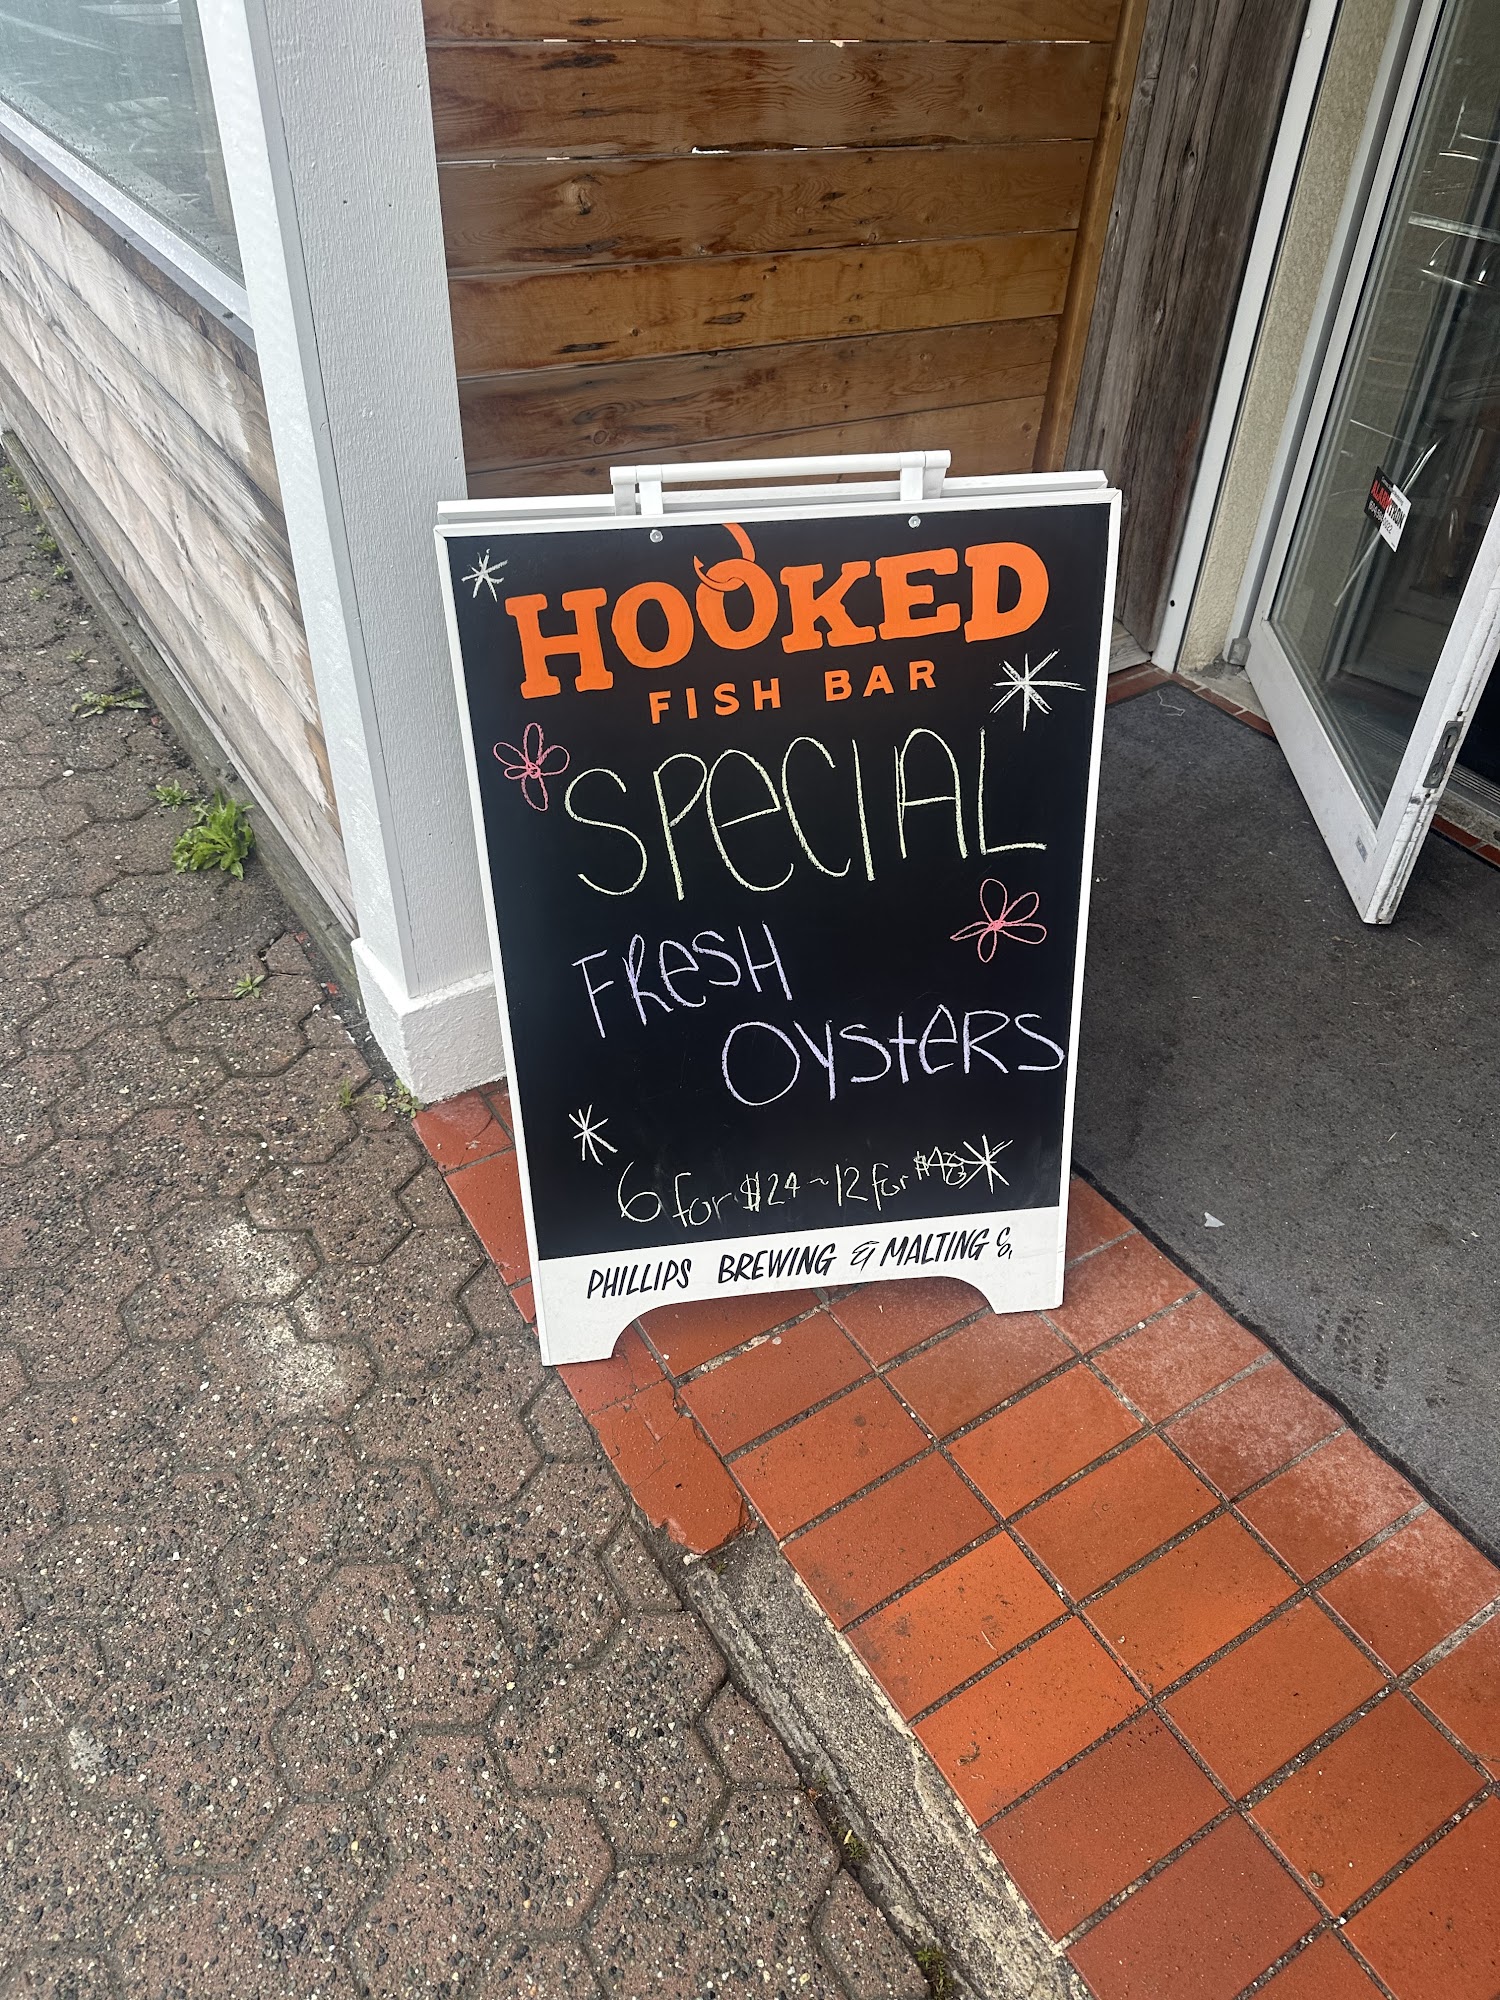 HOOKED
FISH BAR
SPeCIAL
FReSH
OYSteRS
6 for $24 ~ 12 for $48
PHILLIPS BREWING & MALTING Co.
ALARMTRON